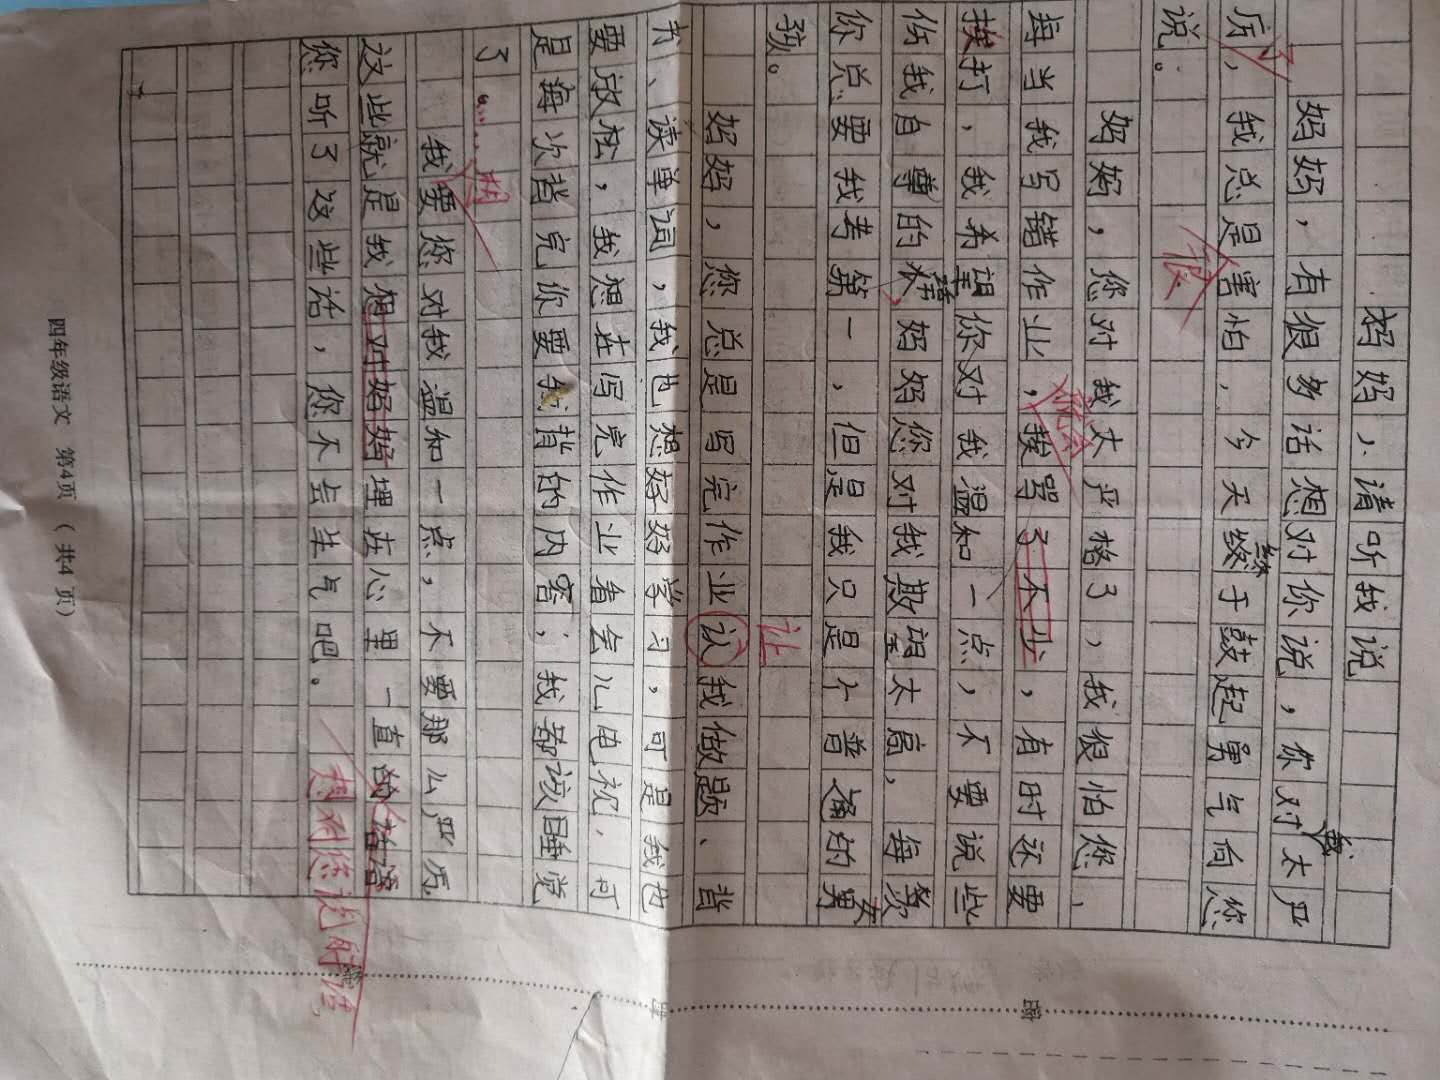 妈妈，请听我说
妈妈，有很多话想对你说，你对我太严
厉了，我总是很害怕，今天终于鼓起勇气向您
说。
妈妈，您对我太严格了，我很怕您，
每当我写错作业，就会挨骂了不少，有时还要
挨打，我希望你对我温和一点，不要说些
伤我自尊的话，妈妈您对我期望太高，每次
你总要我考第一，但是我只是个普通的男
孩。
妈妈，您总是写完作业认我做题、背
让
书、读单词，我也想好好学习，可是我也
要放松，我想在写完作业看会儿电视，可
是每次背完你要我背的内容，我都该睡觉
了……
我想要您对我温和一点，不要那么严厉。
这些就是我想对妈妈埋在心里一直的话语
想对您说的话
您听了这些话，您不会生气吧。
四年级语文 第4页 （共4页）